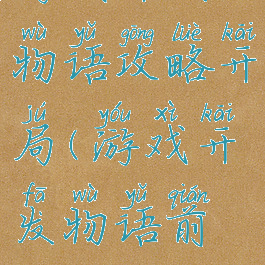 wù yǔ gōng lüè kāi
物语攻略开
jú yóu xì kāi
局(游戏开
fā wù yǔ qián
发物语前